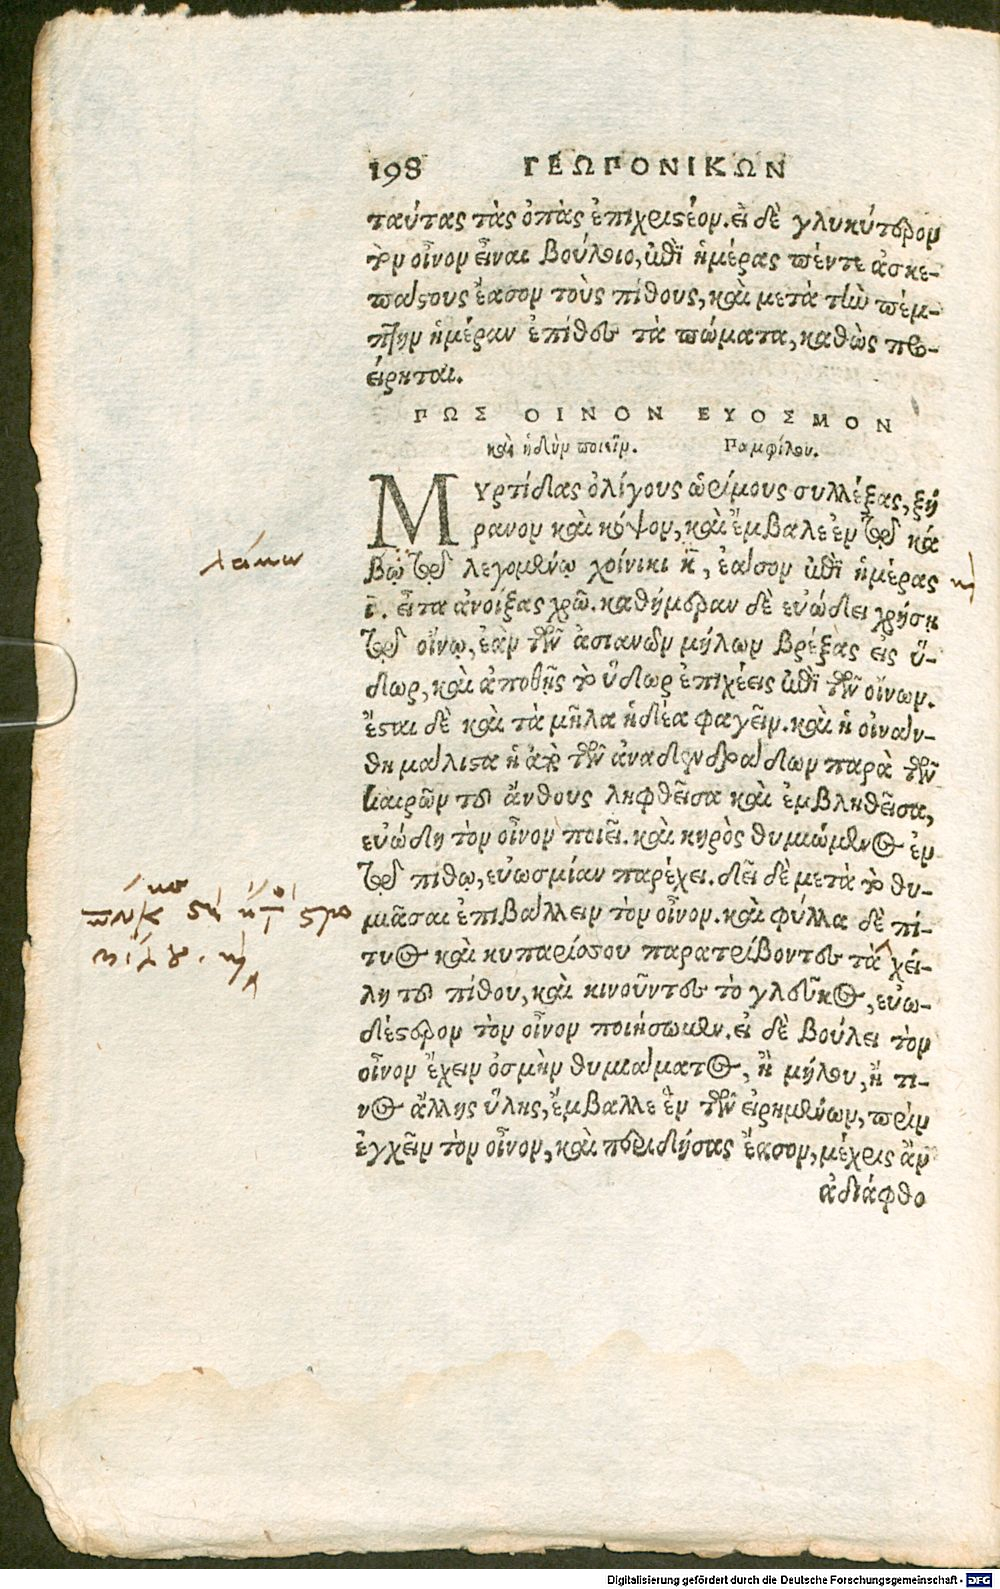 198 ΓΕΩΠΟΝΙΚΩΝ
ταύτας τὰς ὀπὰς ἐπιχριστέον. εἰ δὲ γλυκύτερον
τὸν οἶνον εἶναι βούλοιο, ἐπὶ ἡμέρας πέντε ἀσκε-
πάστους ἔασον τοὺς πίθους, καὶ μετὰ τὴν πέμ-
πτην ἡμέραν ἐπίθου τὰ πώματα, καθὼς προ-
είρηται.
ΠΩΣ ΟΙΝΟΝ ΕΥΟΣΜΟΝ
καὶ ἡδὺν ποιεῖν. Παμφίλου.
ΜΥρτίδας ὀλίγους ὡρίμους συλλέξας, ξή
ρανον καὶ κόψον, καὶ ἔμβαλε ἐν τῷ κά
βῳ τῷ λεγομένῳ χοίνικι κ̄, ἔασον ἐπὶ ἡμέρας
ῑ. εἶτα ἀνοίξας χρῶ. καθήμεραν δὲ εὐώδει χρήσῃ
τῷ οἴνῳ, ἐὰν τῶν ἀσιανῶν μήλων βρέξας εἰς ὕ-
δωρ, καὶ ἀποθῇς τὸ ὕδωρ ἐπιχέεις ἐπὶ τῶν οἴνων.
ἔσται δὲ καὶ τὰ μῆλα ἡδέα φαγεῖν. καὶ ἡ οἰνάν-
θη μάλιστα ἡ ἀπὸ τῶν ἀναδενδράδων παρὰ τῶν
καιρῶν τοῦ ἄνθους ληφθεῖσα καὶ ἐμβληθεῖσα,
εὐώδη τὸν οἶνον ποιεῖ. καὶ κηρὸς θυμιώμενος ἐν
τῷ πίθῳ, εὐωσμίαν παρέχει. δεῖ δὲ μετὰ τὸ θυ-
μιᾶσαι ἐπιβάλλειν τὸν οἶνον. καὶ φύλλα δὲ πί-
τυος καὶ κυπαρίσσου παρατρίβοντες τὰ χεί-
λη τοῦ πίθου, καὶ κινοῦντες τὸ γλεῦκος, εὐω-
δέστερον τὸν οἶνον ποιήσωμεν. εἰ δὲ βούλει τὸν
οἶνον ἔχειν ὀσμὴν θυμιάματος, ἢ μήλου, ἤ τι-
νος ἄλλης ὕλης, ἔμβαλλε ἓν τῶν εἰρημένων, πρὶν
ἐγχεῖν τὸν οἶνον, καὶ περιδήσας ἔασον, μέχρις ἂν
ἀδιάφθο
Digitalisierung gefördert durch die Deutsche Forschungsgemeinschaft - DFG